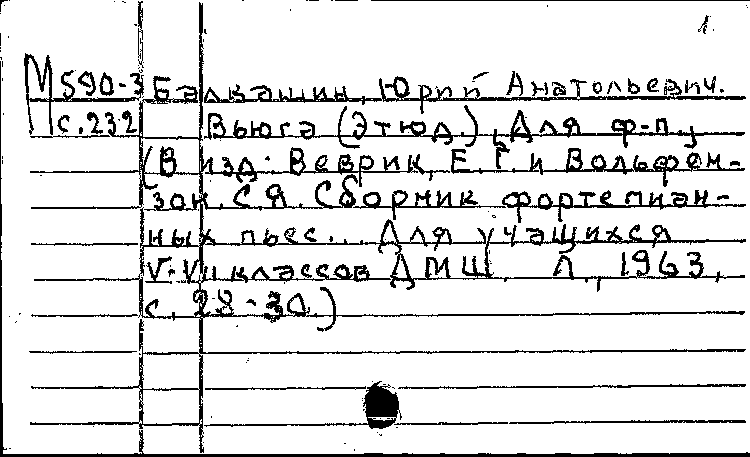 1.
М590-3 Балкашин, Юрий Анатольевич.
с.232 Вьюга (Этюд.), Для ф-п.,
(В изд: Веврик, Е.Г. и Вольфен-
зон. С.Я. Сборник фортепиан-
ных пьес... Для учащихся
V-VII классов ДМШ. Л., 1963,
с. 28-30.)